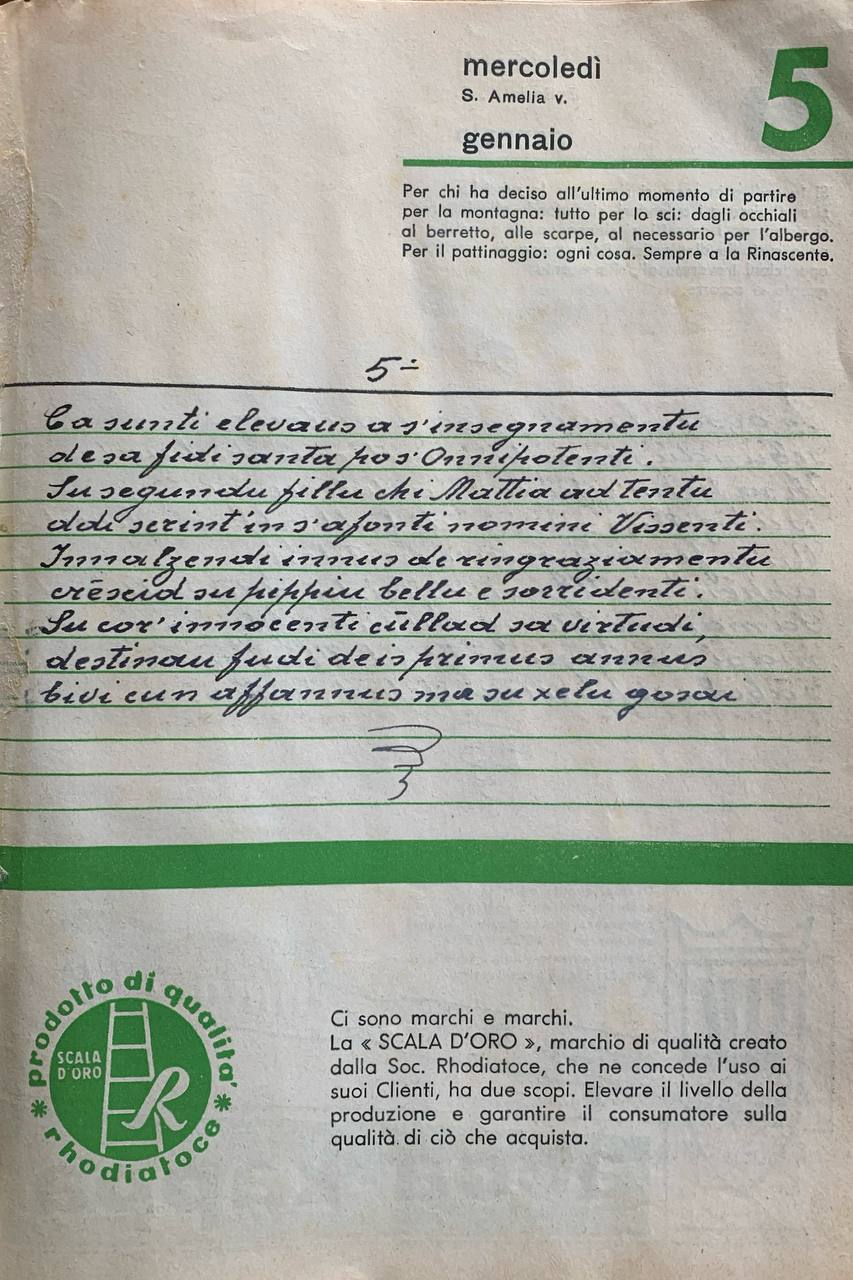 mercoledì
S. Amelia v.
gennaio
5
Per chi ha deciso all'ultimo momento di partire
per la montagna: tutto per lo sci: dagli occhiali
al berretto, alle scarpe, al necessario per l'albergo.
Per il pattinaggio: ogni cosa. Sempre a la Rinascente.
5-
Ca sunti elevaus a s'insegnamentu
de sa fidi santa po s'Onnipotenti.
Su segundu fillu chi Mattia ad tentu
ddi scrint'in s'afonti nomini Vissenti.
Innalzendi innus de ringraziamentu
crēscid su pippiu bellu e sorridenti.
Su cor'innocenti cūllad sa virtudi,
destinau fudi de is primus annus
bivi cun affannus ma su xelu gosau
prodotto di qualità
SCALA
D'ORO
R
rhodiatoce
Ci sono marchi e marchi.
La « SCALA D'ORO », marchio di qualità creato
dalla Soc. Rhodiatoce, che ne concede l'uso ai
suoi Clienti, ha due scopi. Elevare il livello della
produzione e garantire il consumatore sulla
qualità di ciò che acquista.